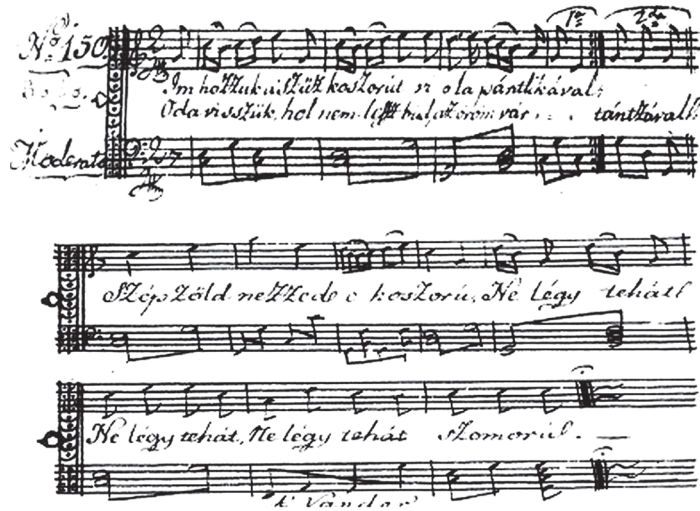 No 150
1ma 2da
Im hozzuk a szűz koszorút viola pántlikával;
Oda visszük, hol nem lejtt bulja öröm vár, . . . tántzával!
Moderato
Szép zöld nézzed e koszorú, Ne légy tehát!
Ne légy tehát, Ne légy tehát szomorú!